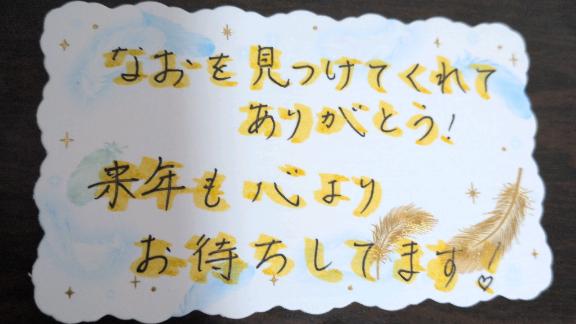 なおを見つけてくれて
ありがとう!
来年も心より
お待ちしてます!